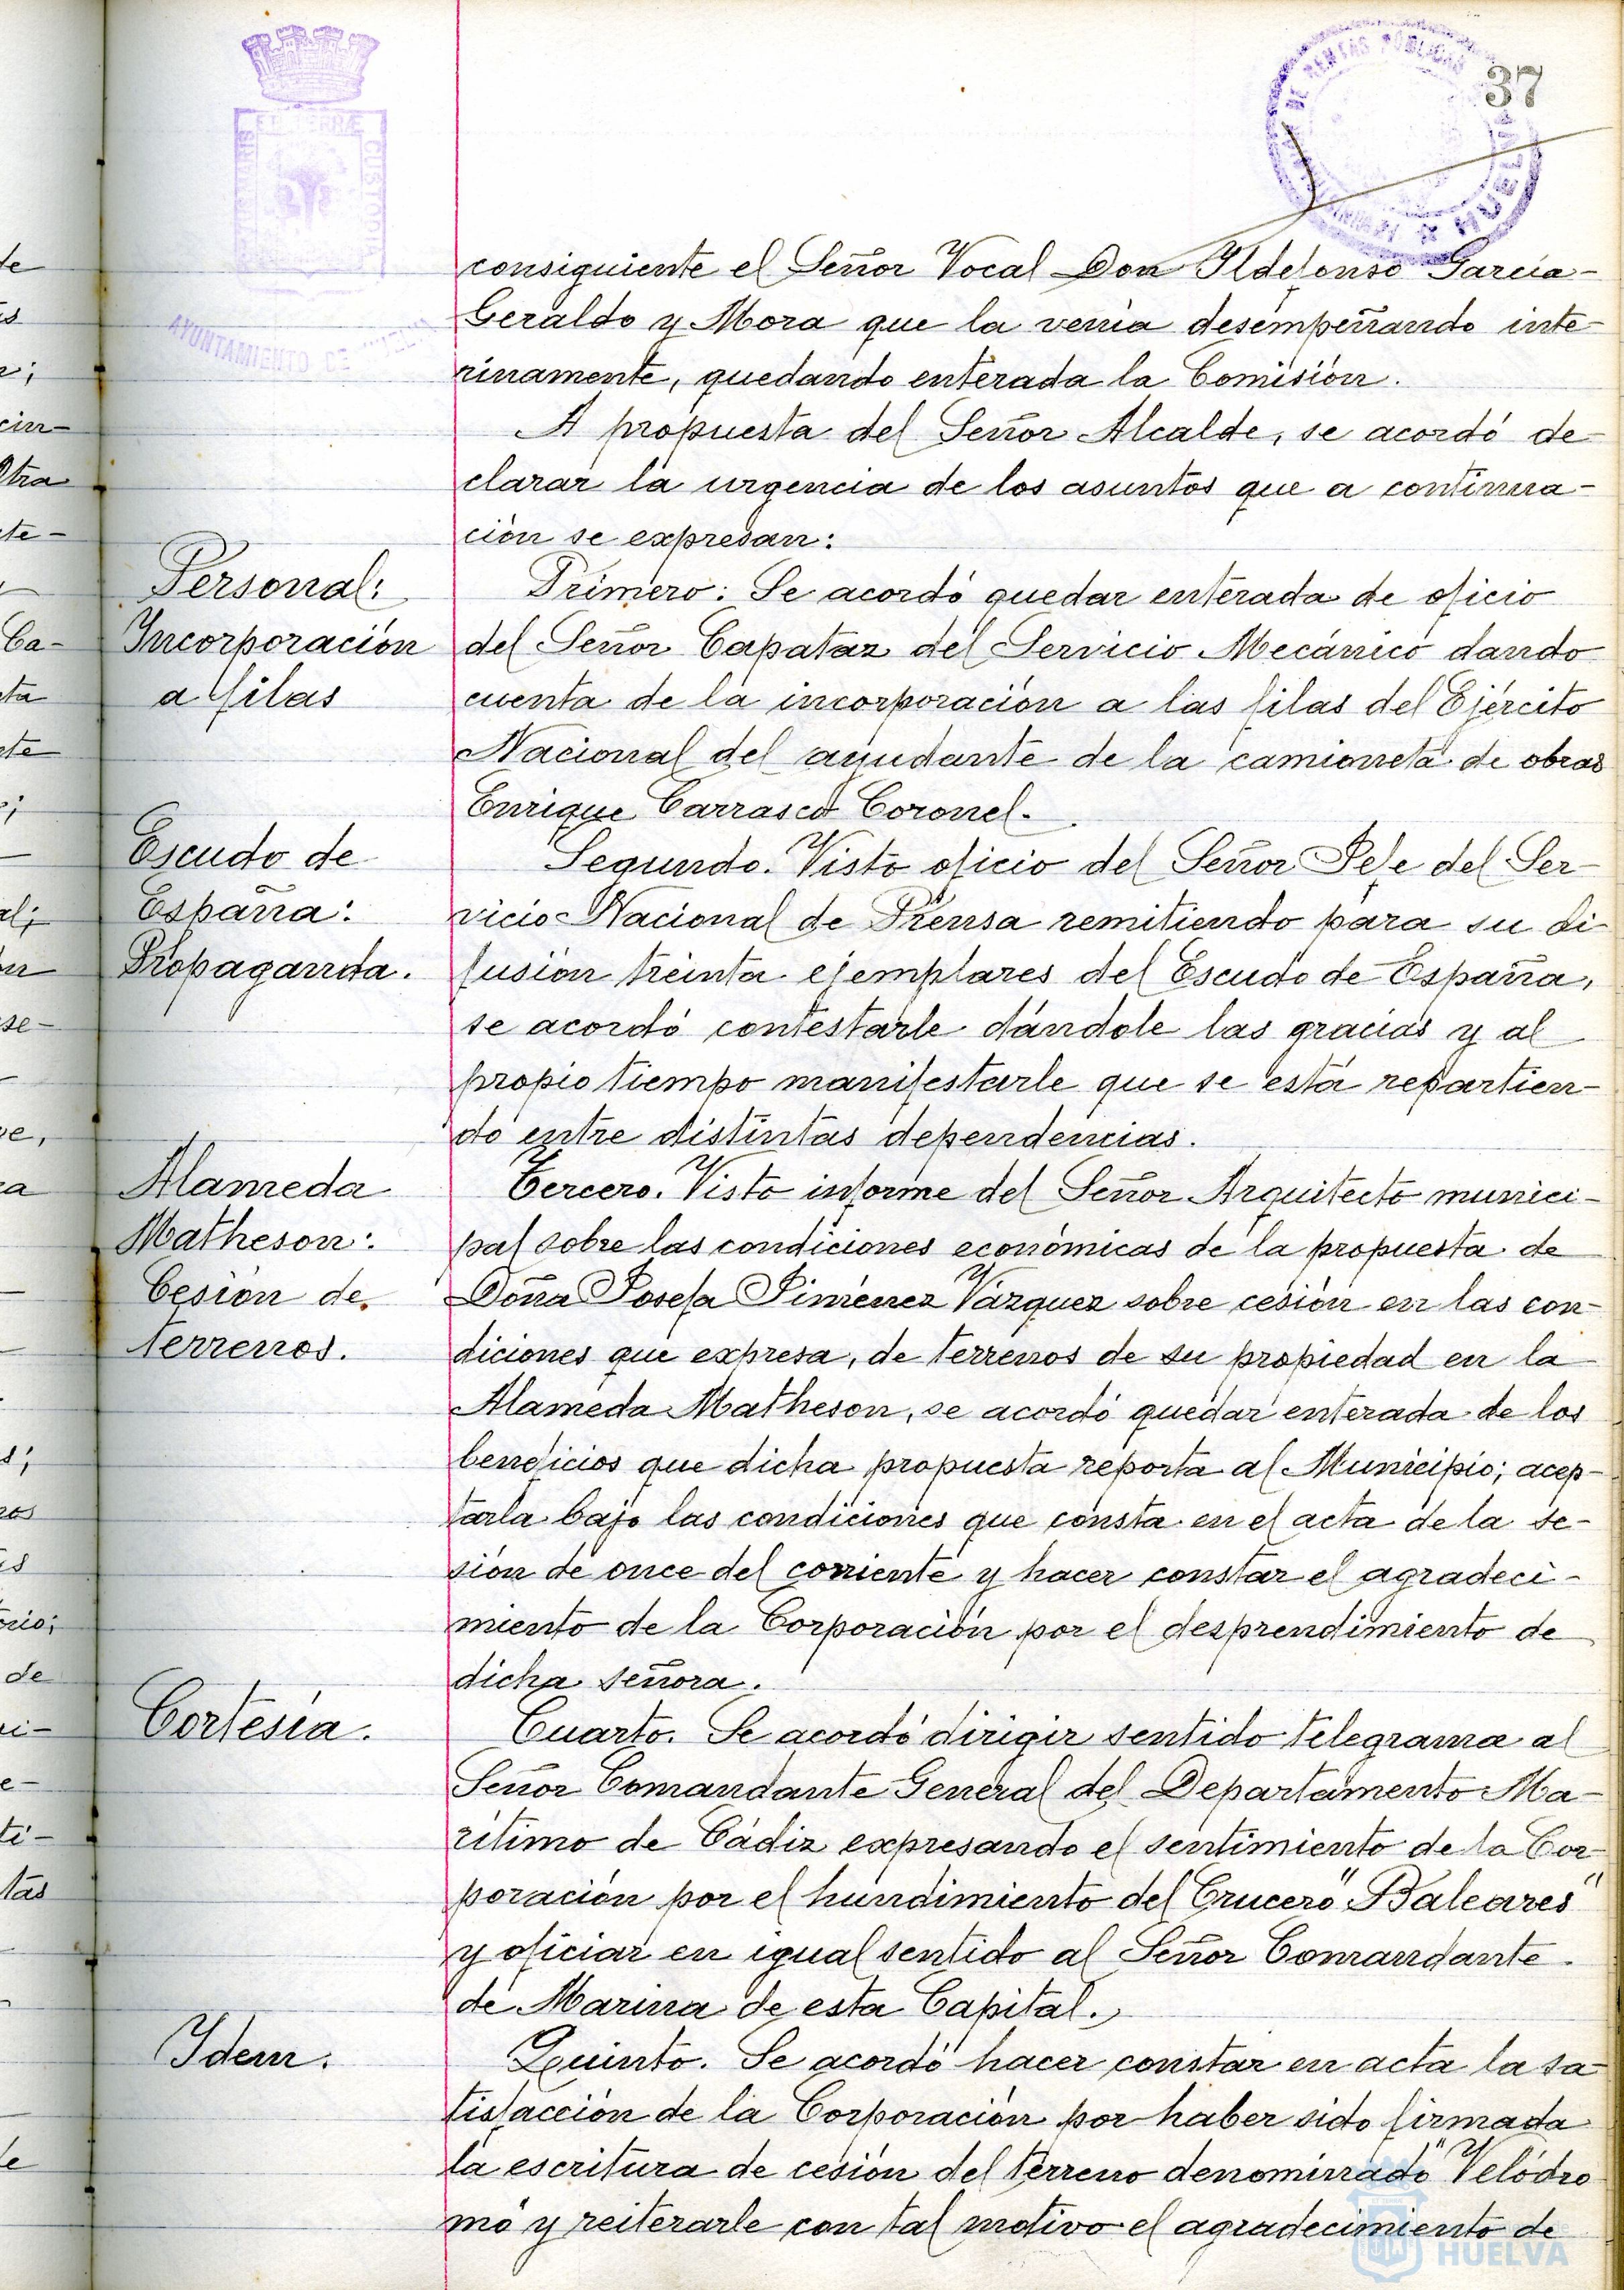 37
AYUNTAMIENTO DE
consiguiente el Señor Vocal Don Ildefonso García-
Geraldo y Mora que la venía desempeñando inte-
rinamente, quedando enterada la Comisión.
A propuesta del Señor Alcalde, se acordó de-
clarar la urgencia de los asuntos que a continua-
ción se expresan:
Personal:
Incorporación
a filas
Primero: Se acordó quedar enterada de oficio
del Señor Capataz del Servicio Mecánico dando
cuenta de la incorporación a las filas del Ejército
Nacional del ayudante de la camioneta de obras
Enrique Carrasco Coronel.
Escudo de
España:
Propaganda.
Segundo. Visto oficio del Señor Jefe del Ser-
vicio Nacional de Prensa remitiendo para su di-
fusión treinta ejemplares del Escudo de España,
se acordó contestarle dándole las gracias y al
propio tiempo manifestarle que se está repartien-
do entre distintas dependencias.
Alameda
Matheson:
Cesión de
terrenos.
Tercero. Visto informe del Señor Arquitecto munici-
pal sobre las condiciones económicas de la propuesta de
Doña Josefa Jiménez Vázquez sobre cesión en las con-
diciones que expresa, de terrenos de su propiedad en la
Alameda Matheson, se acordó quedar enterada de los
beneficios que dicha propuesta reporta al Municipio; acep-
tarla bajo las condiciones que consta en el acta de la se-
sión de once del corriente y hacer constar el agradeci-
miento de la Corporación por el desprendimiento de
dicha señora.
Cortesía.
Cuarto. Se acordó dirigir sentido telegrama al
Señor Comandante General del Departamento Ma-
rítimo de Cádiz expresando el sentimiento de la Cor-
poración por el hundimiento del Crucero "Baleares"
y oficiar en igual sentido al Señor Comandante
de Marina de esta Capital.
Idem.
Quinto. Se acordó hacer constar en acta la sa-
tisfacción de la Corporación por haber sido firmada
la escritura de cesión del terreno denominado "Velódro-
mo y reiterarle con tal motivo el agradecimiento de
HUELVA